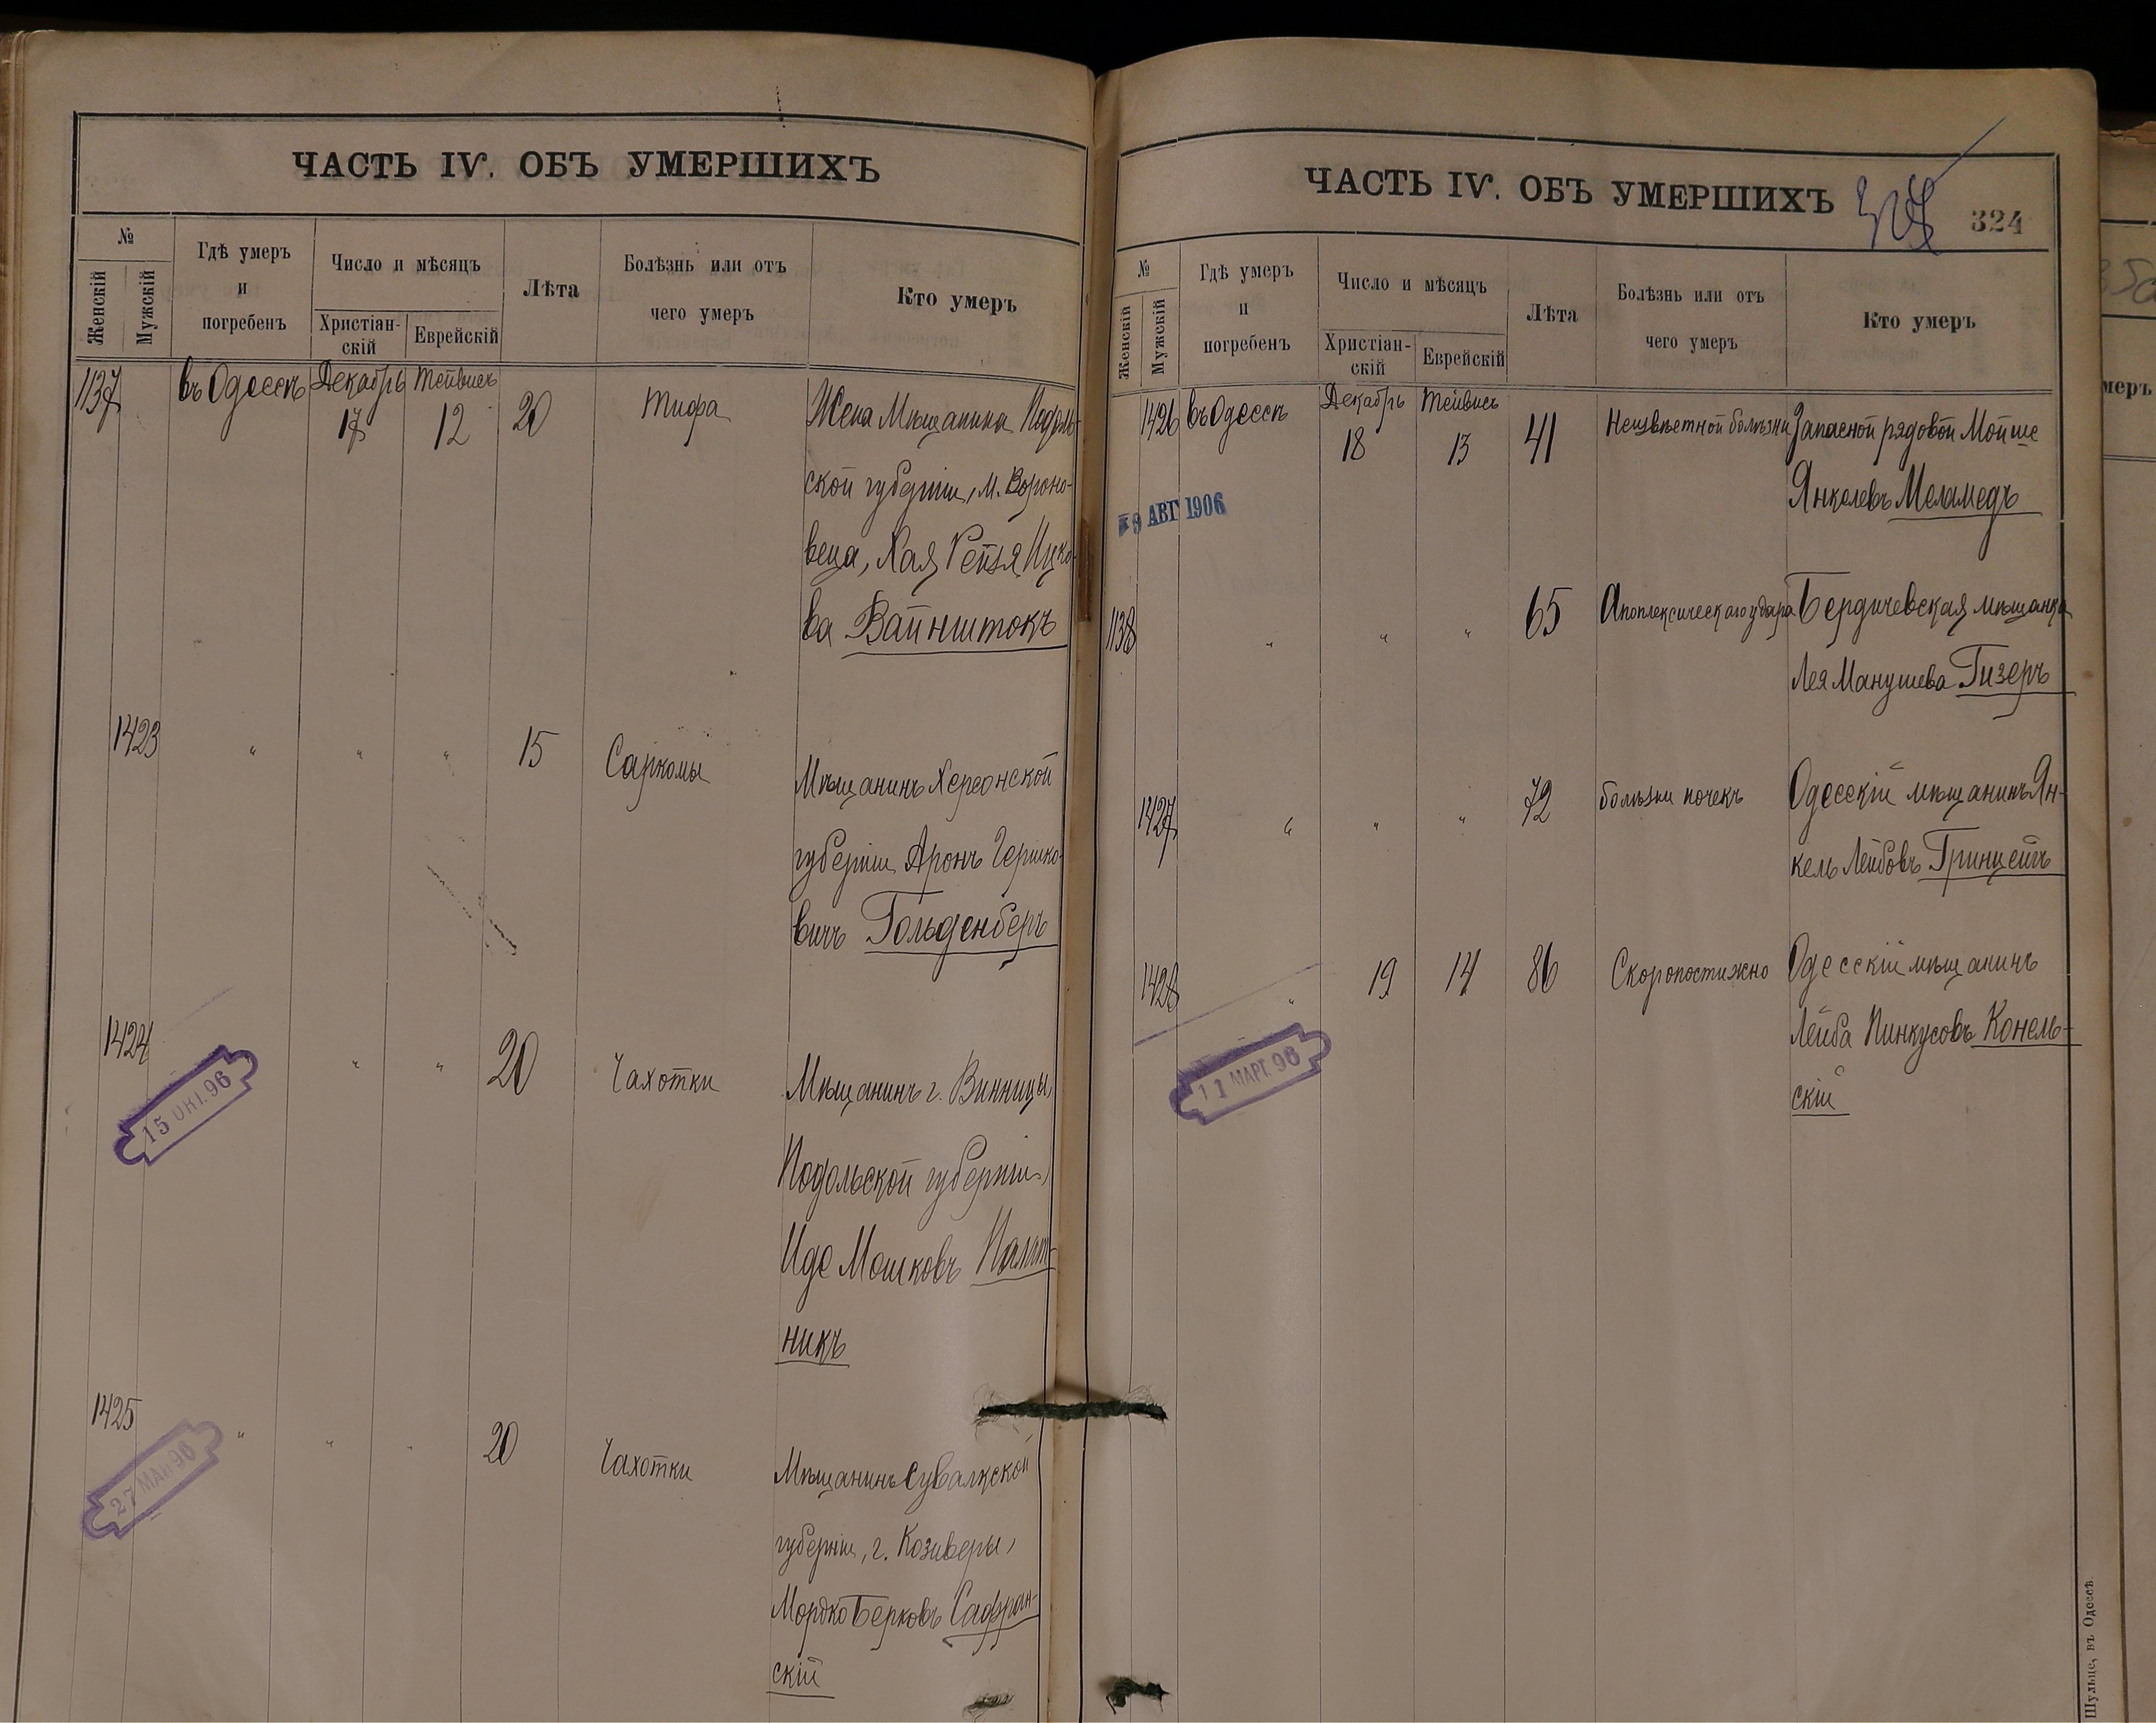 ЧАСТЬ IV. ОБЪ УМЕРШИХЪ
№
Женскій
Мужскій
Гдѣ умеръ
и
погребенъ
Число и мѣсяцъ
Христіан-
скій
Еврейскій
Лѣта
Болѣзнь или отъ
чего умеръ
Кто умеръ
1137 въ Одессѣ Декабрь 17 Тейвисъ 12 20 Тифа Жена Мѣщанина Подоль-
ской губерніи, м. Вороно-
веца, Хая Рейзя Ицко-
ва Вайнштокъ
1423 " " " 15 Саркомы Мѣщанинъ Херсонской
губерніи Аронъ Гершко-
вичъ Гольденберъ
1424 " " 20 Чахотки Мѣщанинъ г. Винницы,
15 ОКТ. 96
Подольской губерніи,
Иде Мошковъ Палат-
никъ
1425 " " " 20 Чахотки Мѣщанинъ Сувалкской
27 МАЯ 96
губерніи, г. Козиверы,
Мордко Берковъ Сафран-
скій
ЧАСТЬ IV. ОБЪ УМЕРШИХЪ
324
№
Женскій
Мужскій
Гдѣ умеръ
и
погребенъ
Число и мѣсяцъ
Христіан-
скій
Еврейскій
Лѣта
Болѣзнь или отъ
чего умеръ
Кто умеръ
1426 въ Одессѣ Декабрь 18 Тейвисъ 13 41 Неизвѣстной болѣзни Запасной рядовой Мойше
Янкелевъ Меламедъ
9 АВГ 1906
1138 " " " 65 Апоплексическаго удара Бердичевская мѣщанка
Лея Манушева Гизеръ
1427 " " " 72 болѣзни почекъ Одесскій мѣщанинъ Ян-
кель Лейбовъ Гринцейгъ
1428 " 19 14 86 Скоропостижно Одесскій мѣщанинъ
Лейба Пинкусовъ Конель-
11 МАРТ. 96
скій
Шульце, въ Одессѣ.
меръ